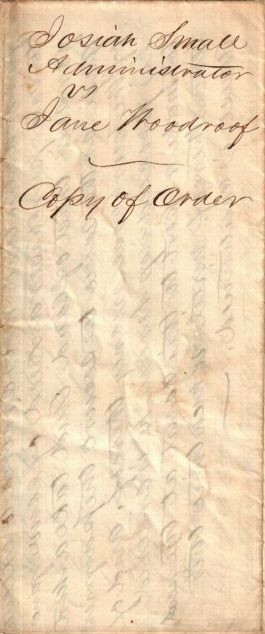 Josiah Small
Administrator
vs
Jane Woodroof
Copy of Order